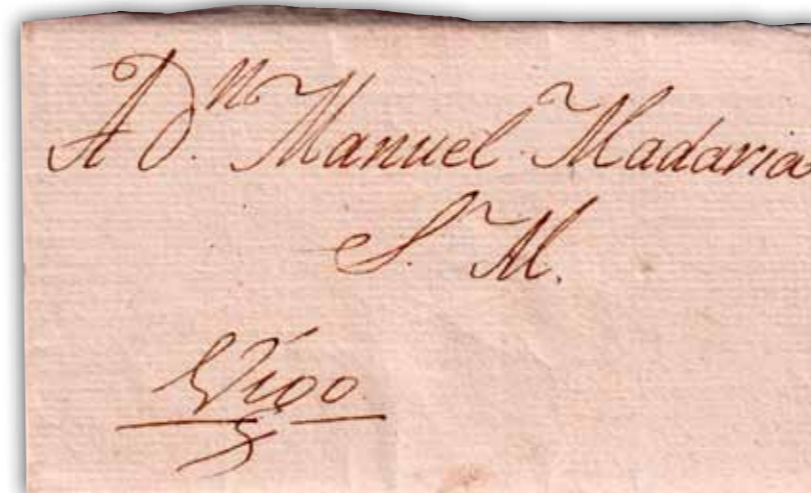 A D.n Manuel Madaria
S. M.
Vigo